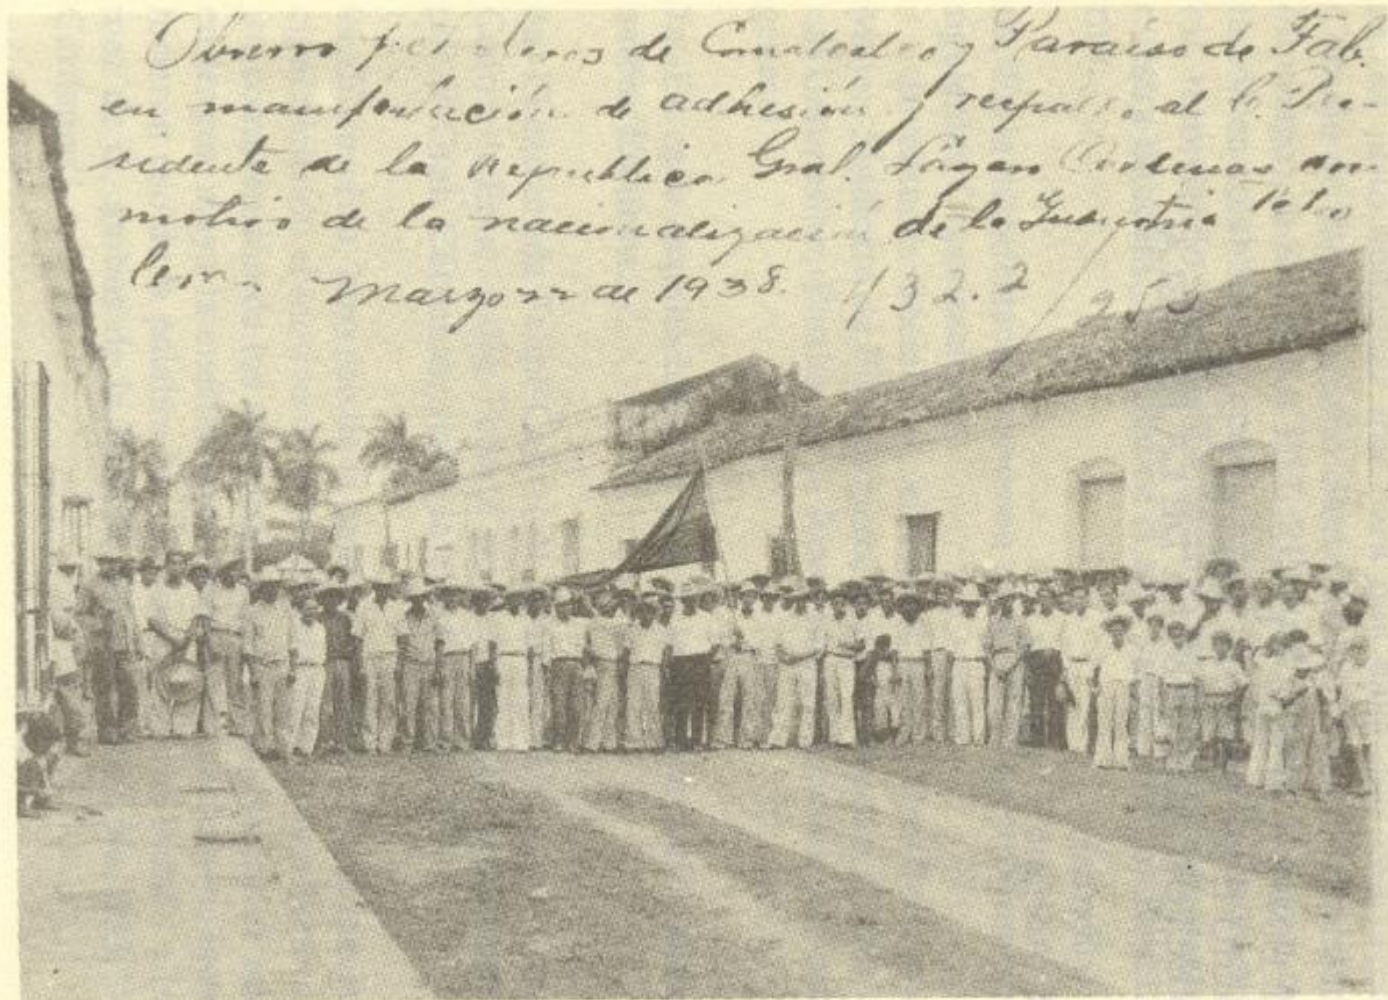 Obreros petroleros de Comalcalco y Paraiso de Tab.
en manifestación de adhesión y respaldo al C. Pre-
sidente de la Republica Gral. Lázaro Cárdenas con
motivo de la nacionalización de la Industria Petro
lera Marzo 22 de 1938. 432.2/253